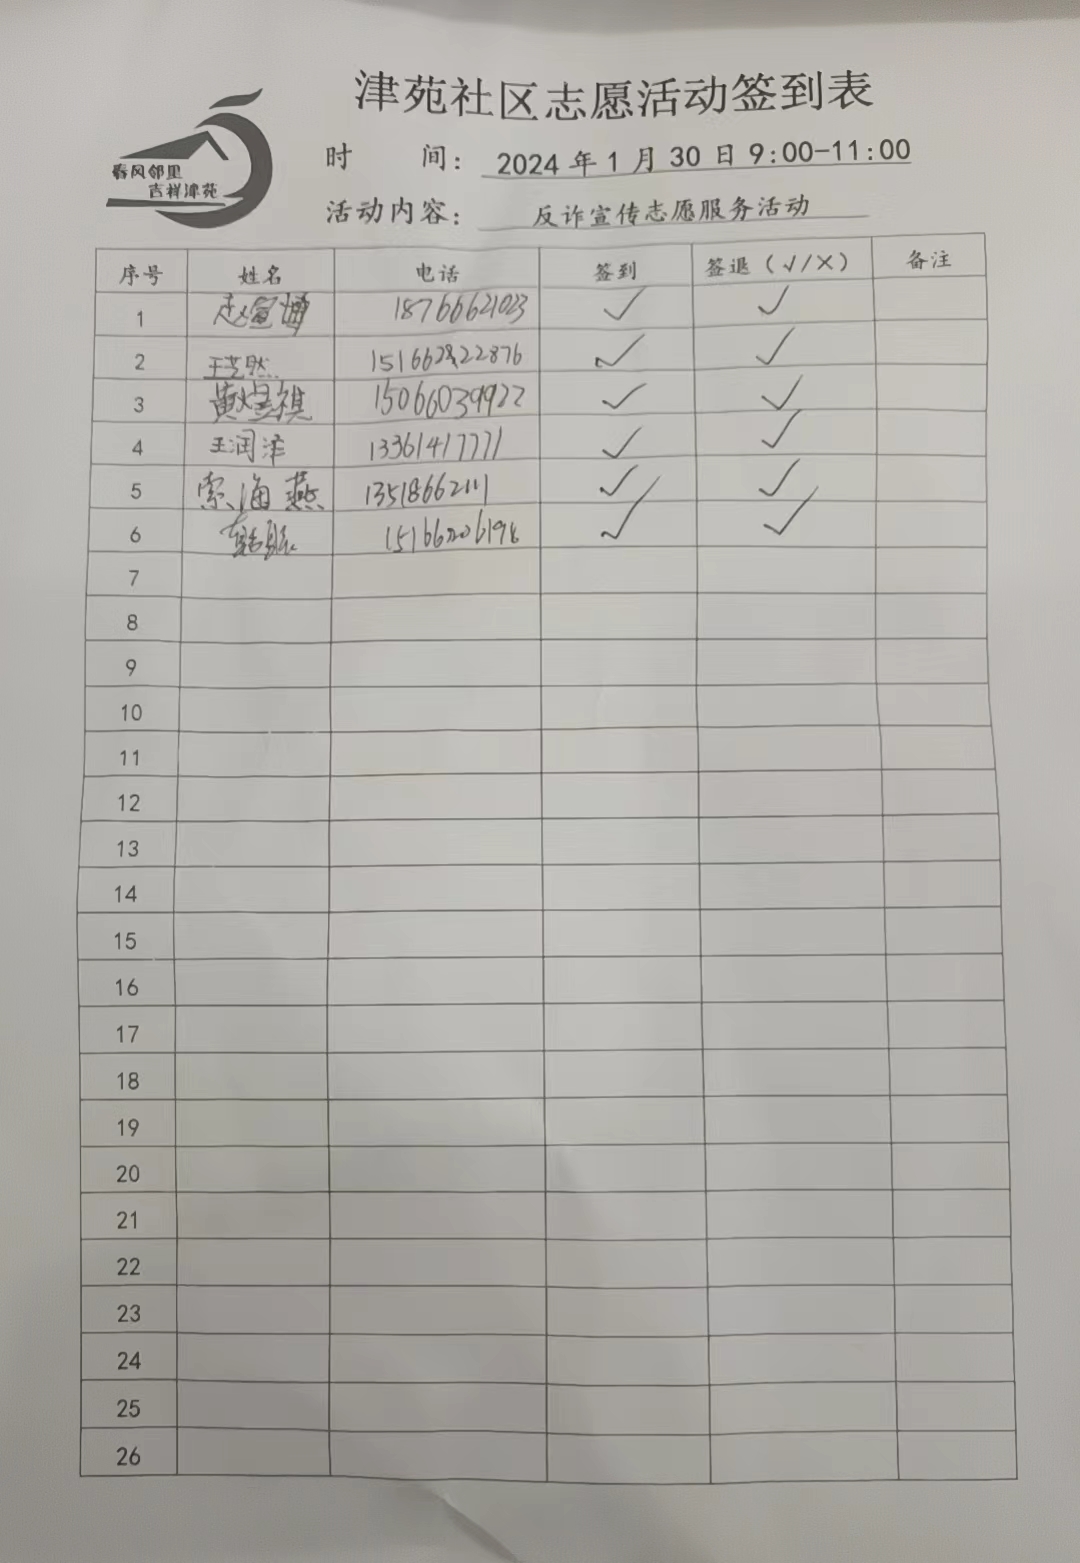 津苑社区志愿活动签到表
春风邻里
吉祥津苑
时 间: 2024年1月30日9:00-11:00
活动内容: 反诈宣传志愿服务活动
序号 姓名 电话 签到 签退(√/×) 备注
1 赵宣博 18766621023 √ √
2 王艺然 √ √
3 黄煜祺 15066039922 √ √
4 王润泽 13361417771 √ √
5 索海燕 13518662111 √ √
6 √ √
7
8
9
10
11
12
13
14
15
16
17
18
19
20
21
22
23
24
25
26